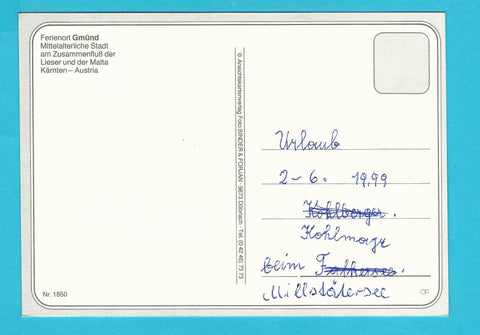 Ferienort Gmünd
Mittelalterliche Stadt
am Zusammenfluß der
Lieser und der Malta
Kärnten – Austria
© Ansichtskartenverlag Foto BINDER & FORJAN · 9873 Döbriach · Tel. (0 42 46) 73 73
Urlaub
2–6. 1999
Kohlberger.
Kohlmayr
beim
Millstätersee
Nr. 1850